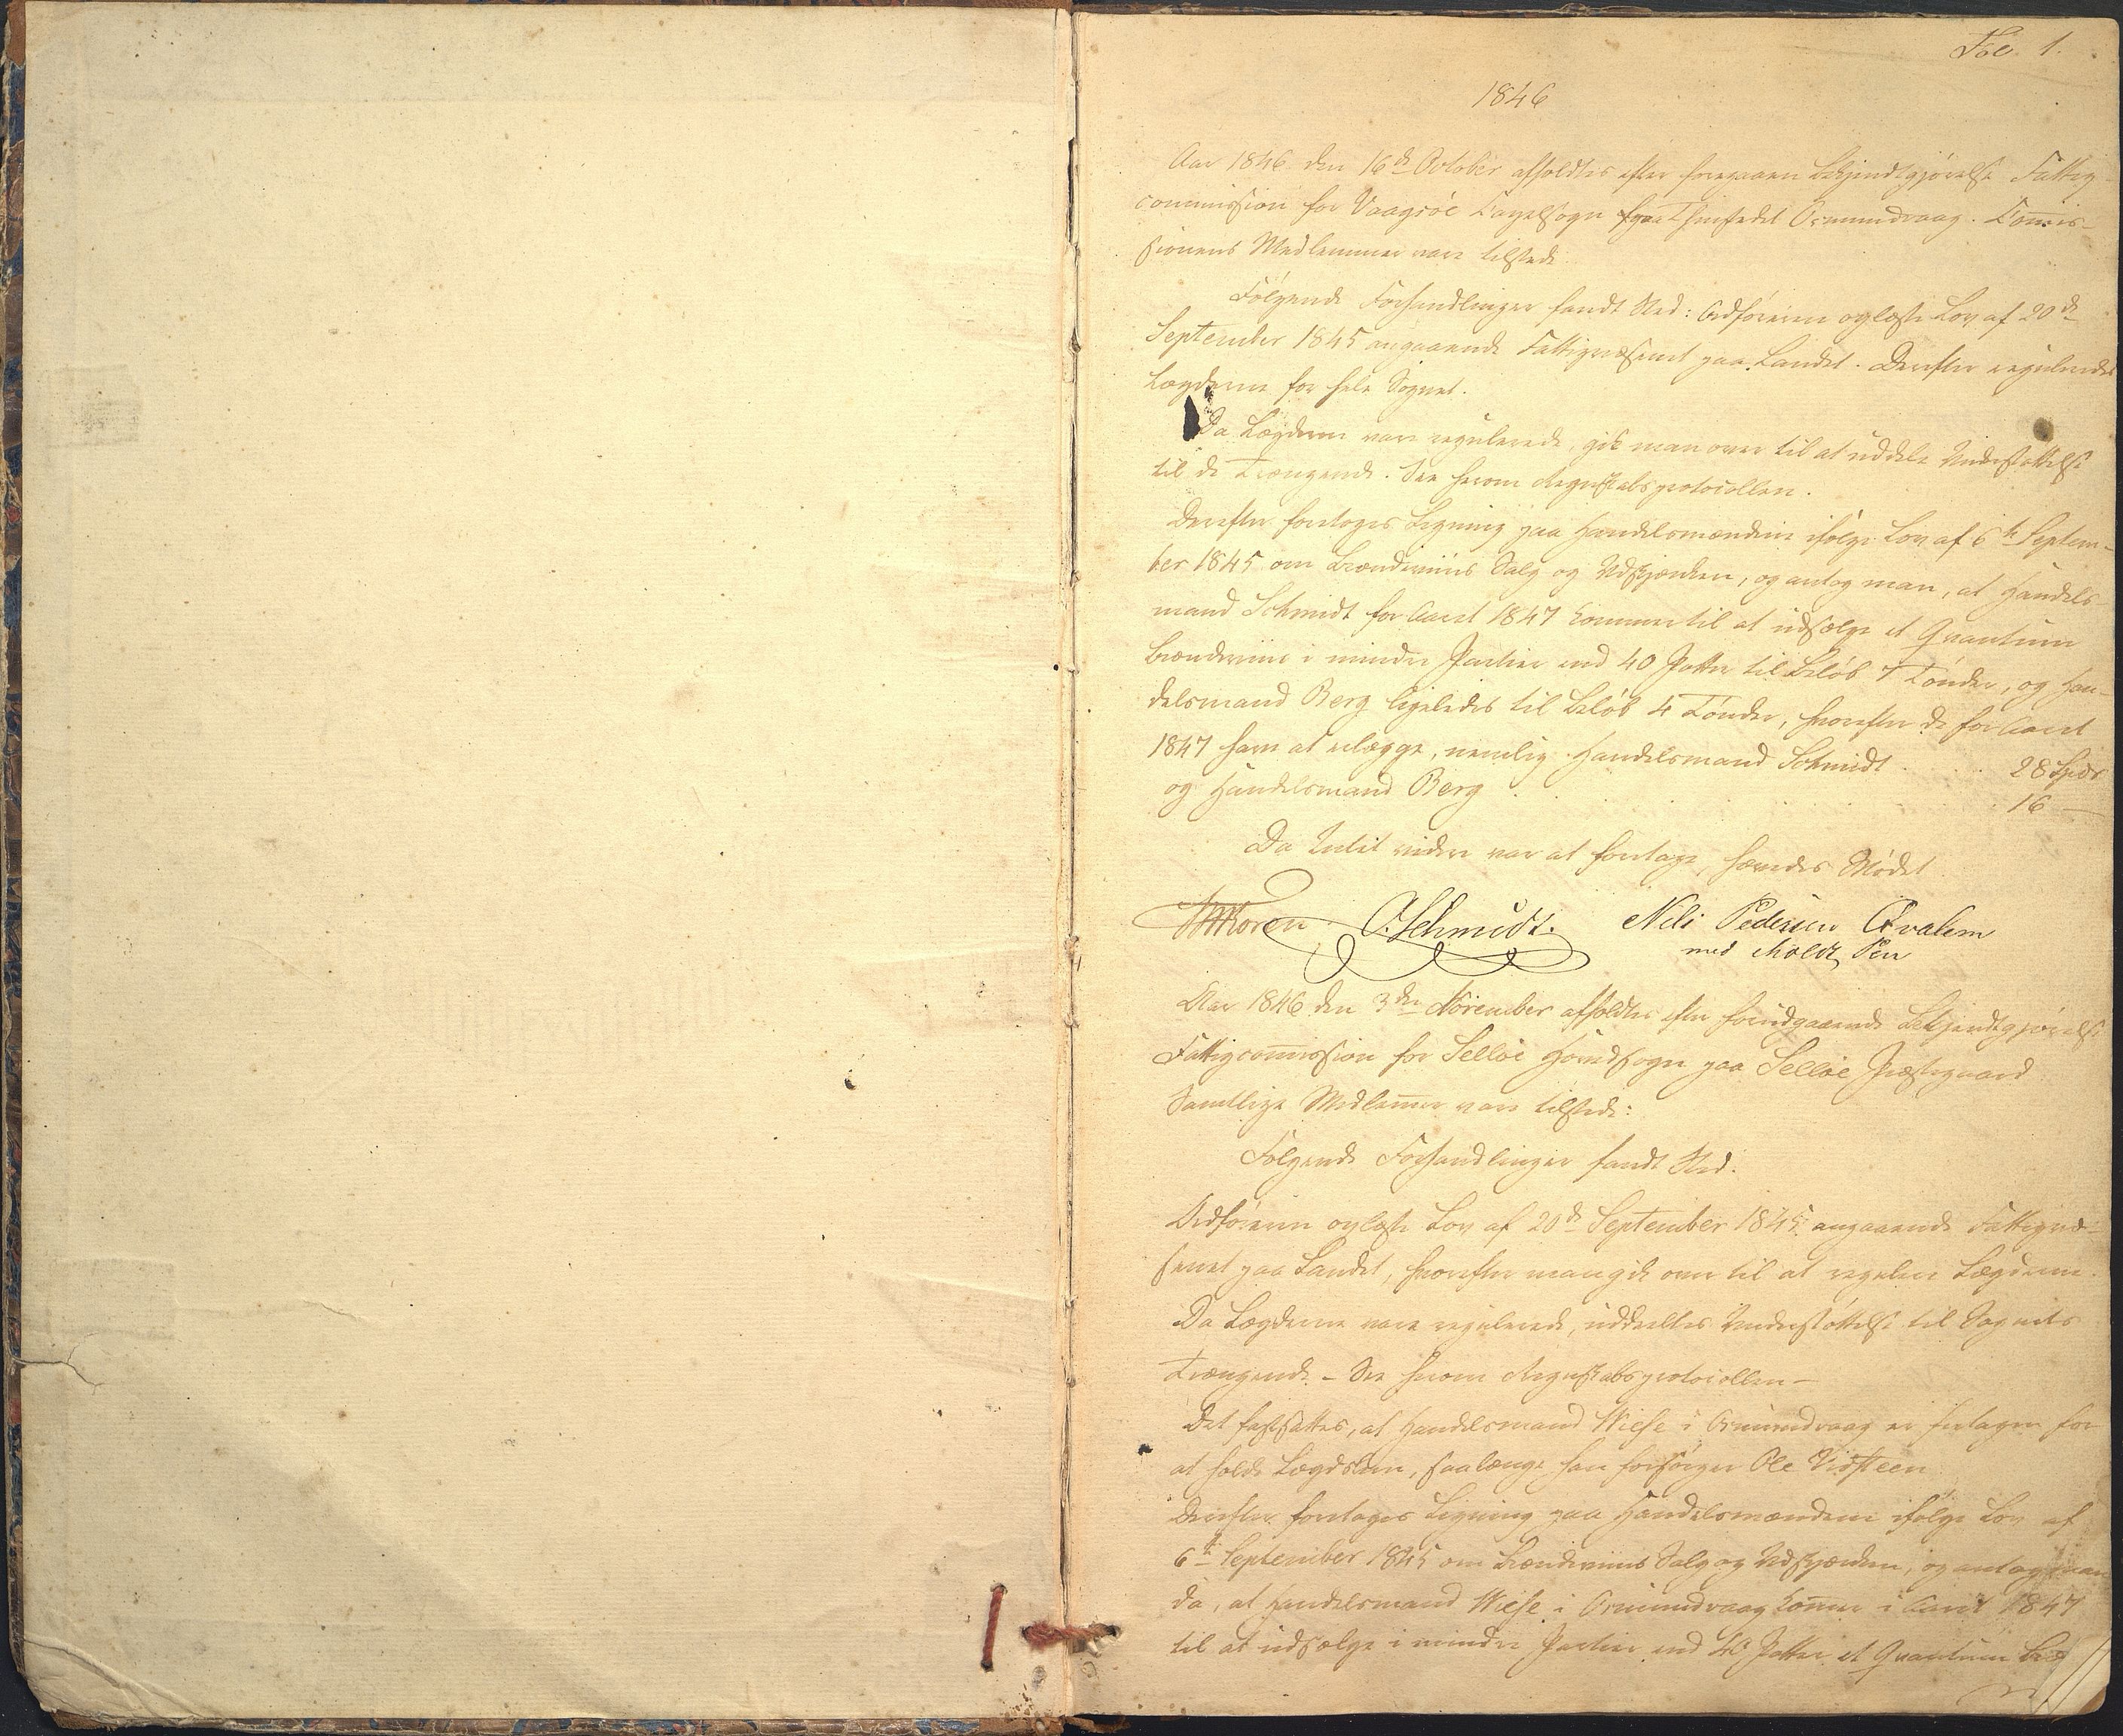 Fol. 1.
1846
Aar 1846 den 16de October afholdtes efter foregaaen Bekjendtgjørelse Fattig-
commission for Vaagsöe Capelsogn paa Thinstedet Osmundvaag. Comis-
sionens Medlemmer vare tilstede.
Fölgende Forhandlinger fandt Sted: Ordföreren oplæste Lov af 20de
September 1845 angaaende Fattigvæsenet paa Landet. Derefter reguleredes
Lægderne for hele Sognet.
Da Lægderne vare regulerede, gik man over til at uddele Understöttelse
til de Trængende. See herom Regnskabsprotocollen.
Derefter foretoges Ligning paa Handelsmændene ifölge Lov af 6te Septem-
ber 1845 om Brændeviins Salg og Udskjænken, og antog man, at Handels-
mand Schmidt for Aaret 1847 kommer til at udsælge et Qvantum
Brændeviin i mindre Partier end 40 Potter til Belöb 7 Tönder, og Han-
delsmand Berg ligeledes til Belöb 4 Tönder, hvorefter de for Aaret
1847 have at erlægge, nemlig Handelsmand Schmidt . . . 28 Spdr
og Handelsmand Berg . . . 16 —
Da Intet videre var at foretage, hævedes Mödet.
Koren C. Schmidt. Nils Pedersen Qvalem
med Pen
Aar 1846 den 3die November afholdtes efter forudgaaende Bekjendtgjörelse
Fattigcomission for Selloe Hovedsogn paa Selloe Præstegaard
Samtlige Medlemer vare tilstede:
Fölgende Forhandlinger fandt Sted.
Ordföreren oplæste Lov af 20de September 1845 angaaende Fattigvæ-
senet paa Landet, hvorefter man gik over til at regulere Lægderne.
Da Lægderne vare regulerede, uddeeltes Understöttelse til Sognets
Trængende. – See herom Regnskabsprotocollen –
Det fastsattes, at Handelsmand Wiese i Osmundvaag er fritagen for
at holde Lægdslem, saalænge han forsörger Ole Vedsteen
Derefter foretoges Ligning paa Handelsmændene ifölge Lov af
6te September 1845 om Brændeviins Salg og Udskjænken, og antog man
da, at Handelsmand Wiese i Osmundvaag komer i Aaret 1847
til at udsælge i mindre Partier end 40 Potter et Qvantum Bræ-